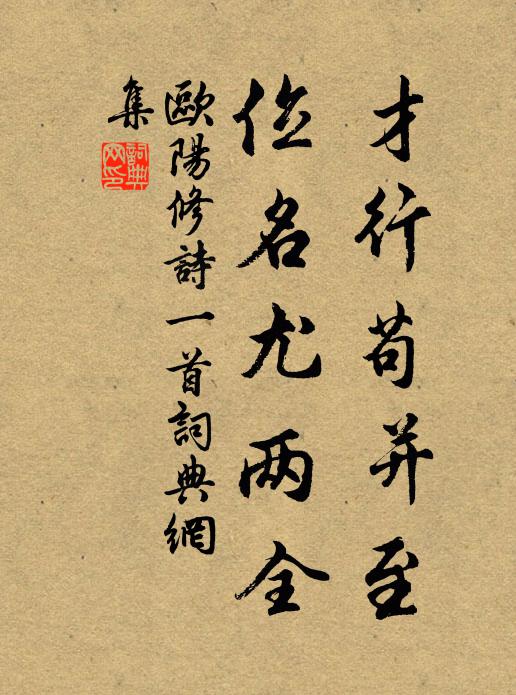 才行苟并至
位名尤两全
歐陽修詩一首詞典網
集
詞典
网印